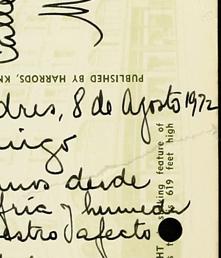 Calle
PUBLISHED BY HARRODS, KN
dres, 8 de Agosto 1972
migo
mos desde
fría y humeda
estro afecto
striking feature of
s 619 feet high